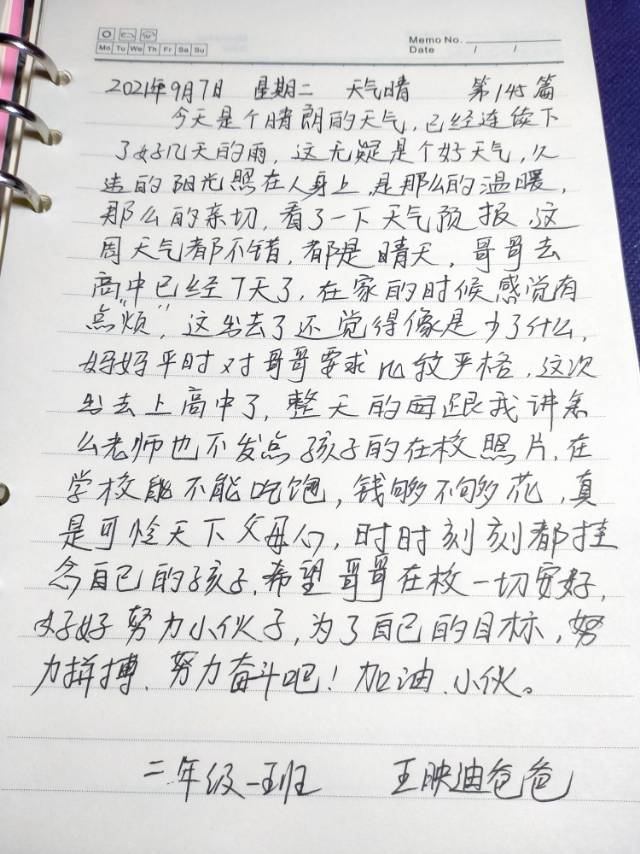 Memo No.
Mo Tu We Th Fr Sa Su
Date / /
2021年9月7日 星期二 天气晴 第145篇
今天是个晴朗的天气,已经连续下
了好几天的雨,这无疑是个好天气,久
违的阳光照在人身上,是那么的温暖,
那么的亲切,看了一下天气预报,这
周天气都不错,都是晴天,哥哥去
高中已经7天了,在家的时候感觉有
点“烦”,这出去了还觉得像是少了什么,
妈妈平时对哥哥要求比较严格,这次
出去上高中了,整天的因跟我讲怎
么老师也不发点孩子的在校照片,在
学校能不能吃饱,钱够不够花,真
是可怜天下父母心,时时刻刻都挂
念自己的孩子,希望哥哥在校一切安好,
好好努力小伙子,为了自己的目标,努
力拼搏、努力奋斗吧!加油、小伙。
二年级一班 王映迪爸爸